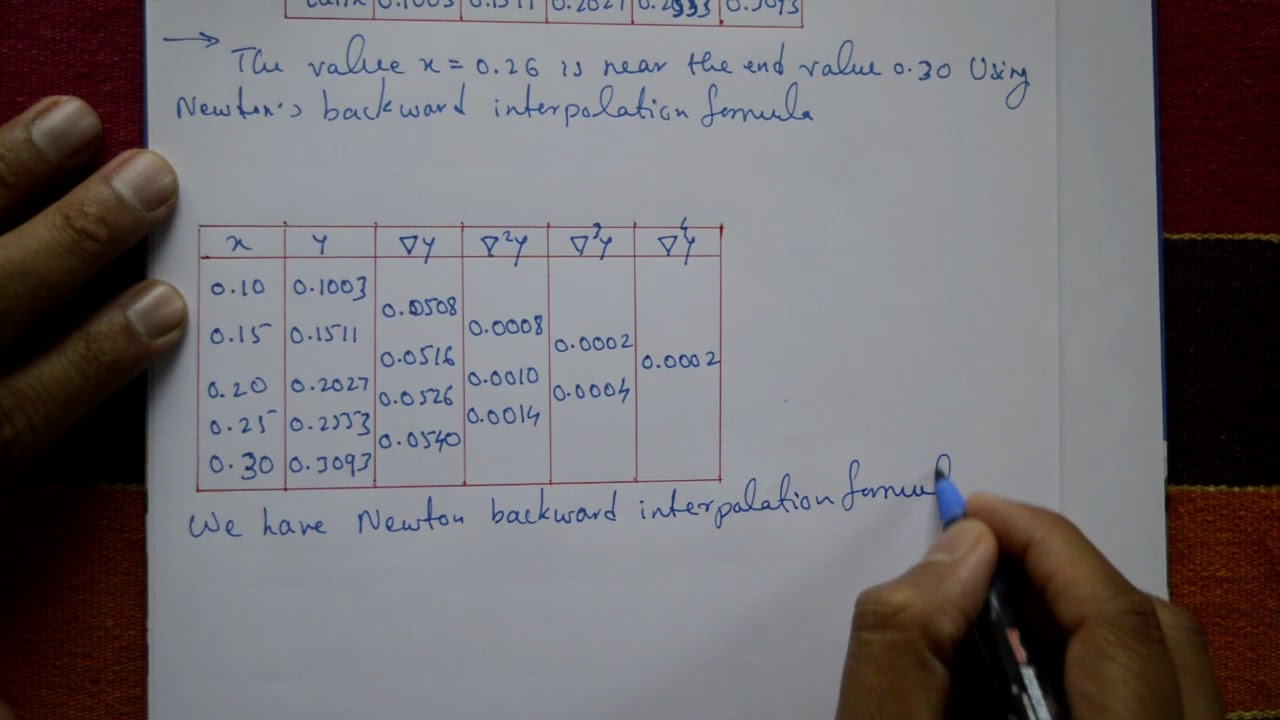 tanx 0.1003 0.1511 0.2027 0.2553 0.3093
→ The value x = 0.26 is near the end value 0.30 Using
Newton's backward interpolation formula
x y ∇y ∇²y ∇³y ∇⁴y
0.10 0.1003
0.0508
0.15 0.1511 0.0008
0.0516 0.0002
0.20 0.2027 0.0010 0.0002
0.0526 0.0004
0.25 0.2553 0.0014
0.0540
0.30 0.3093
We have Newton backward interpolation formul